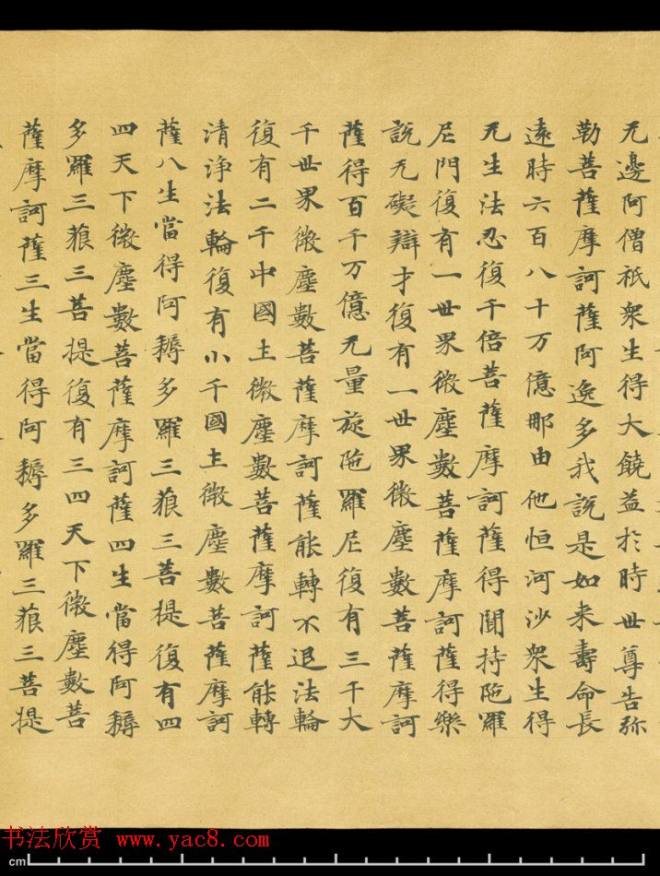 无邊阿僧祇衆生得大饒益於時世尊告弥
勒菩薩摩訶薩阿逸多我說是如来壽命長
遠時六百八十万億那由他恒河沙衆生得
无生法忍復千倍菩薩摩訶薩得聞持陁羅
尼門復有一世界微塵數菩薩摩訶薩得樂
說无礙辯才復有一世界微塵數菩薩摩訶
薩得百千万億无量旋陁羅尼復有三千大
千世界微塵數菩薩摩訶薩能轉不退法輪
復有二千中國土微塵數菩薩摩訶薩能轉
清淨法輪復有小千國土微塵數菩薩摩訶
薩八生當得阿耨多羅三藐三菩提復有四
四天下微塵數菩薩摩訶薩四生當得阿耨
多羅三藐三菩提復有三四天下微塵數菩
薩摩訶薩三生當得阿耨多羅三藐三菩提
书法欣赏 www.yac8.com
cm